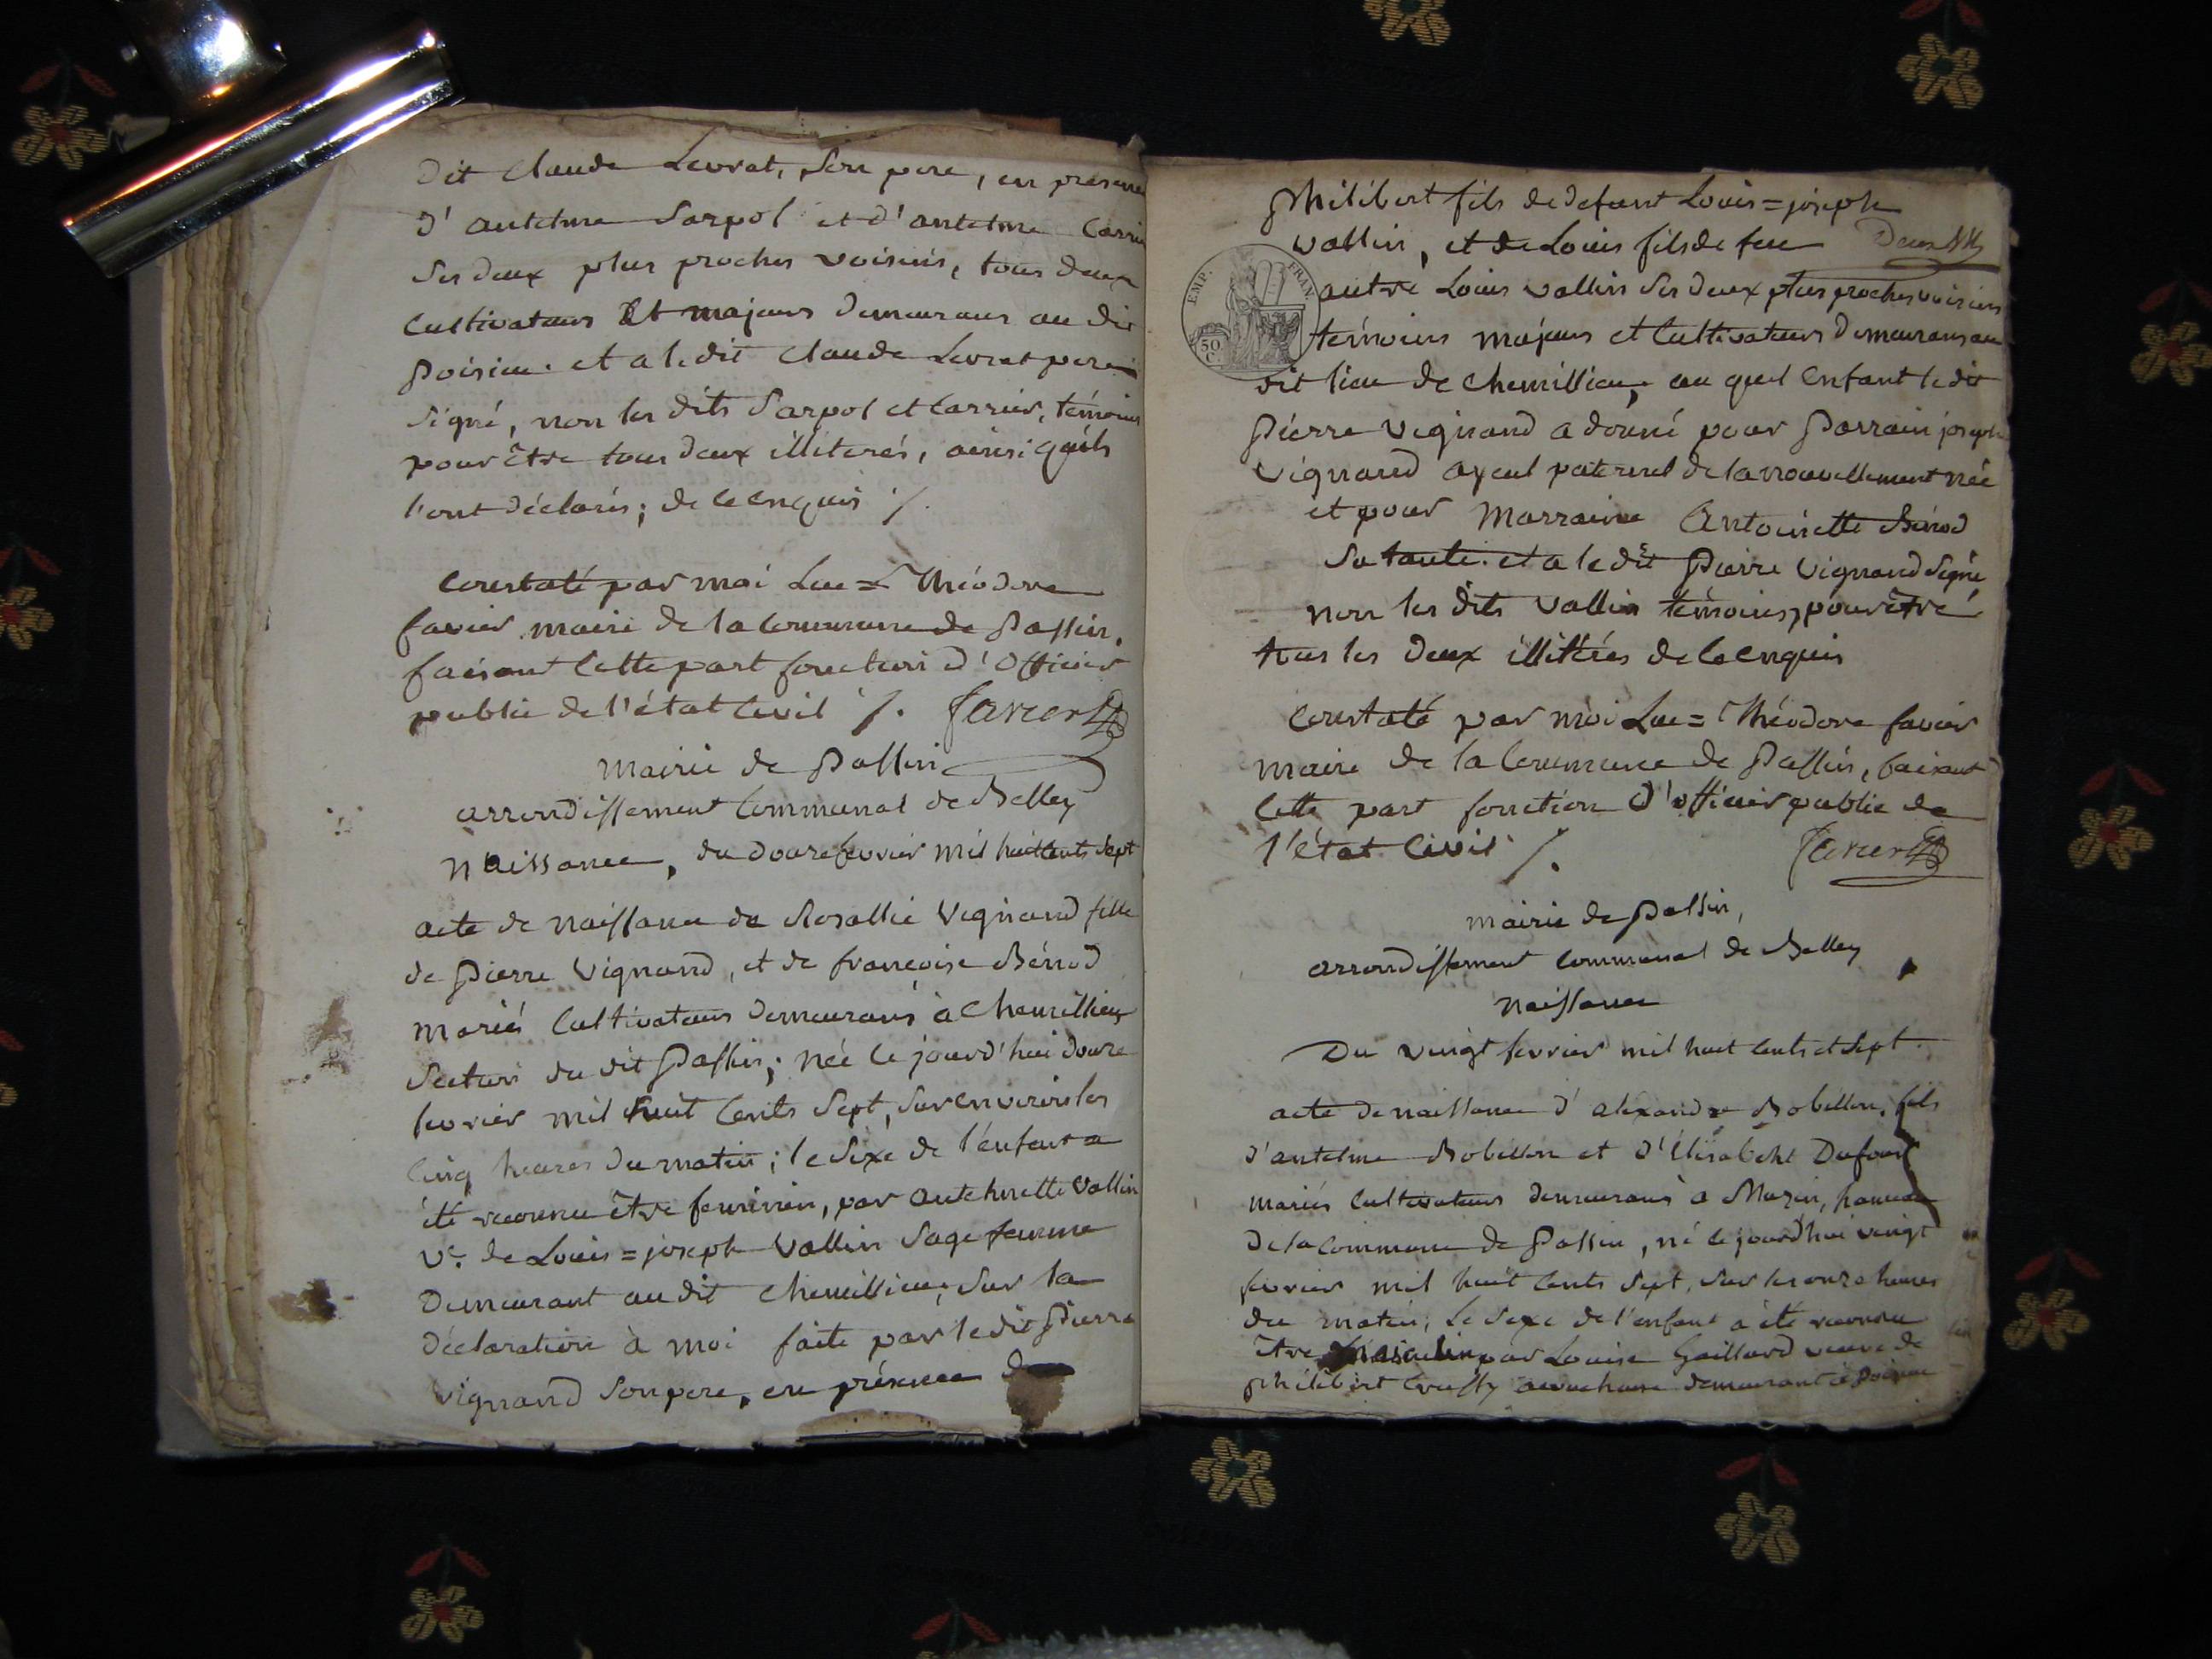 dit Claude Levrat, son pere, en presence
d'antelme Sarpol et d'antelme Carrier
ses deux plus proches voisins, tous deux
cultivateurs Et majeurs demeurans au dit
Poisieu. et a le dit Claude Levrat pere
signé, non les dits Sarpol et Carrier, témoins
pour être tous deux illiterés, ainsi qu'ils
l'ont déclarés; de ce enquis /.
Constaté par moi Luc=Théodore
favier maire de la Commune de Passin,
faisant cette part fonction d'Officier
public de l'état Civil /. Favier
mairie de Passin
arrondissement Communal de Belley
Naissance, du douze fevrier mil huit cents sept
acte de naissance de Rosallie Vignand fille
de Pierre Vignand, et de françoise Bénod
mariés Cultivateurs demeurans à Chemillieu
section du dit Passin; née ce jourd'hui douze
fevrier mil huit cents sept, sur environ les
cinq heures du matin; le sexe de l'enfant a
été reconnu être feminin, par antelmette Vallin
Ve. de Louis=joseph Vallin sage femme
demeurant au dit Chemillieu; sur la
déclaration à moi faite par le dit Pierre
vignand son pere, en présence de
philibert fils de defunt Louis=joseph
vallin, et de Louis fils de feu
autre Louis vallin ses deux plus proches voisins
témoins majeurs et Cultivateurs demeurans au
dit lieu de chemillieu, au quel enfant le dit
Pierre vignand a donné pour Parrain joseph
vignand ayeul paternel de la nouvellement née
et pour Marraine Antoinette Bénod
sa tante. et a le dit Pierre Vignand signé
non les dits Vallin témoins, pour être
tous les deux illitérés de ce enquis
EMP. FRAN.
50 C.
Constaté par moi Luc=Théodore favier
maire de la Commune de Passin, faisant
cette part fonction d'officier public de
l'état Civil /. Favier
mairie de Passin,
arrondissement communal de Belley
naissance
Du vingt fevrier mil huit cents et sept.
acte de naissance d'alexandre Robillon, fils
d'antelme Robillon et d'Élisabeht Dufour
mariés cultivateurs demeurans a Mazin, hameau
de la Commune de Passin, né ce jourd'hui vingt
fevrier mil huit cents sept, sur les onze heures
du matin; Le sexe de l'enfant a été reconnu
être Masculin par Louise Gaillard veuve de
philibert demeurant à Poisieu